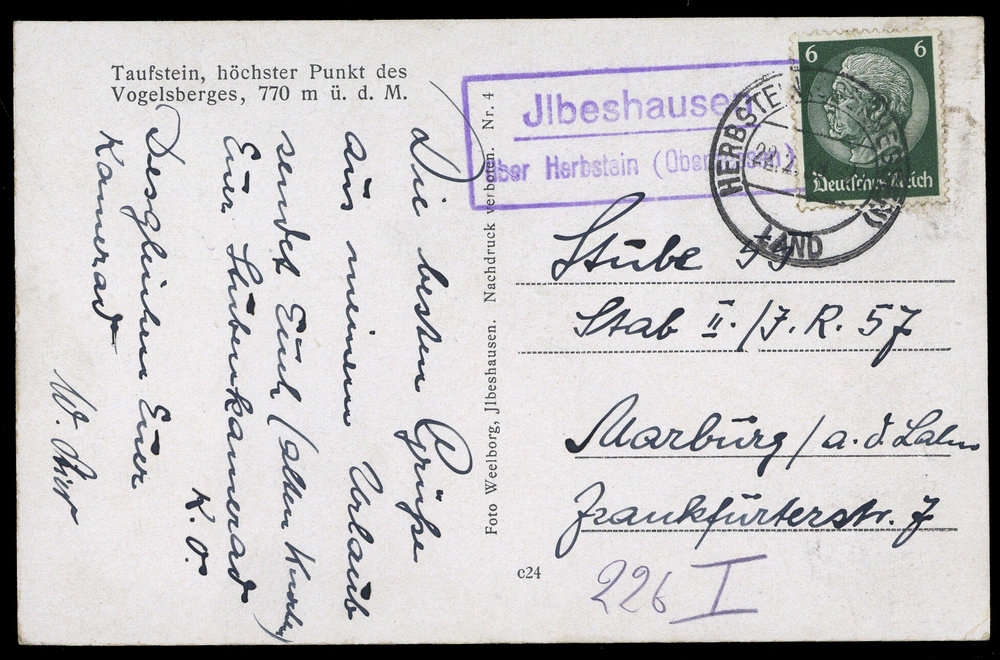 Taufstein, höchster Punkt des
Vogelsberges, 770 m ü. d. M.
Die besten Grüße
aus meinem Urlaub
sendet Euch (alten Knochen)
Euer Stubenkamerad
K. O.
Desgleichen Euer
Kamerad
W.
Foto Weelborg, Jlbeshausen. Nachdruck verboten. Nr. 4
Jlbeshausen
über Herbstein (Oberhessen)
HERBSTEIN
22.2.
LAND
6 6
Deutsches Reich
Stube 59
Stab II./J.R. 57
Marburg/a.d. Lahn
Frankfurterstr. 7
c24
226 I